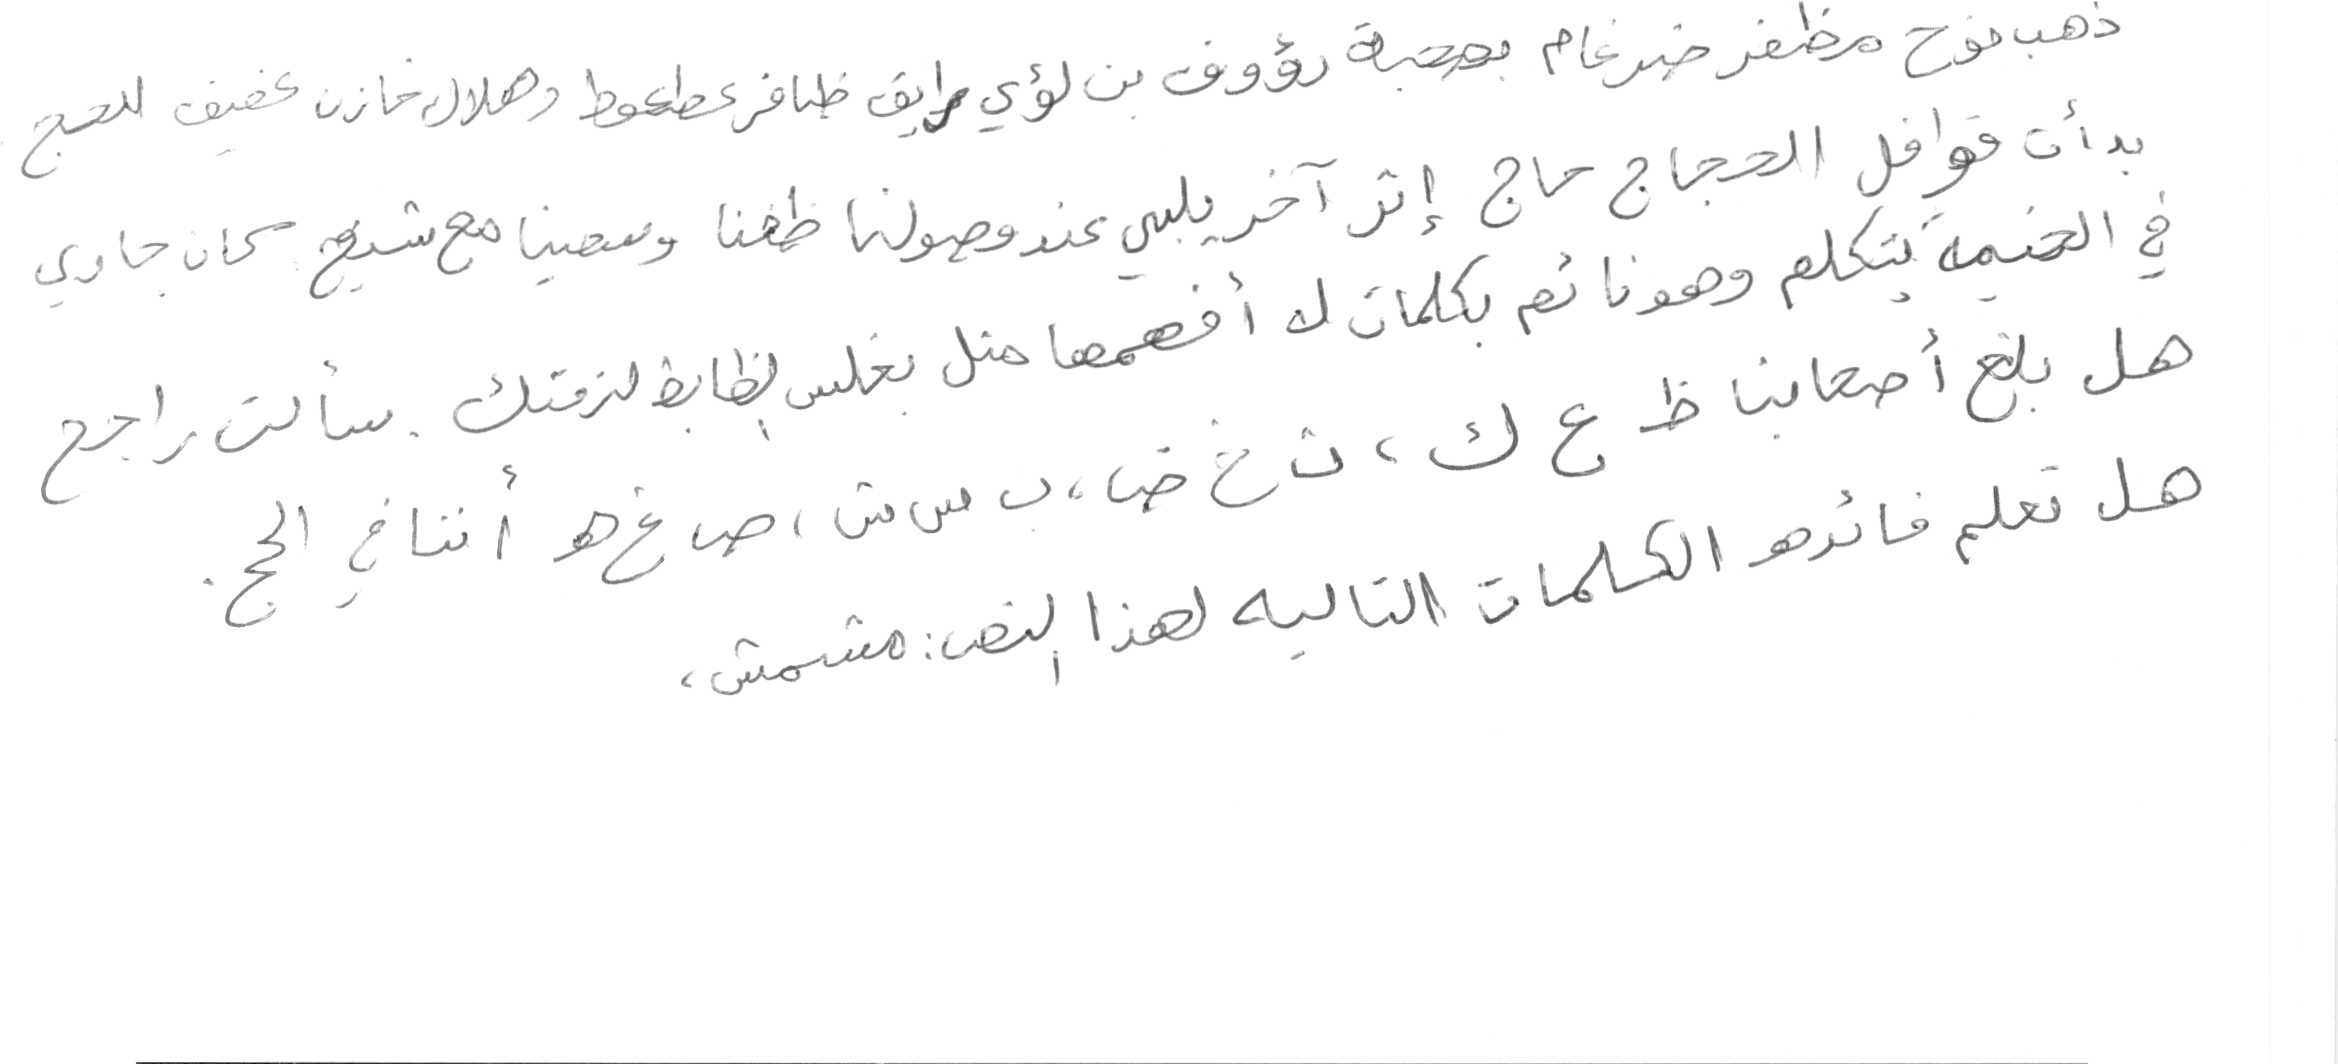 ذهب نوح مظفر ضرغام بصحبة رؤوف بن لؤي رايق ظافر عطعوط وهلال خازن عفيف للحج .
بدأت قوافل الحجاج حاج إثر آخر يلبي عند وصولنا طفنا وسعينا مع شيخ . كان جاري
في الخيمة يتكلم وهو نائم بكلمات لا أفهمها مثل بغلس لزقتك . سألت راجح
هل بلغ أصحابنا ظ ع ك ، ث غ ض ، ب س ش ، ص غ هـ أننا في الحج .
هل تعلم فائده الكلمات التاليه لهذا النص : مشمش ،